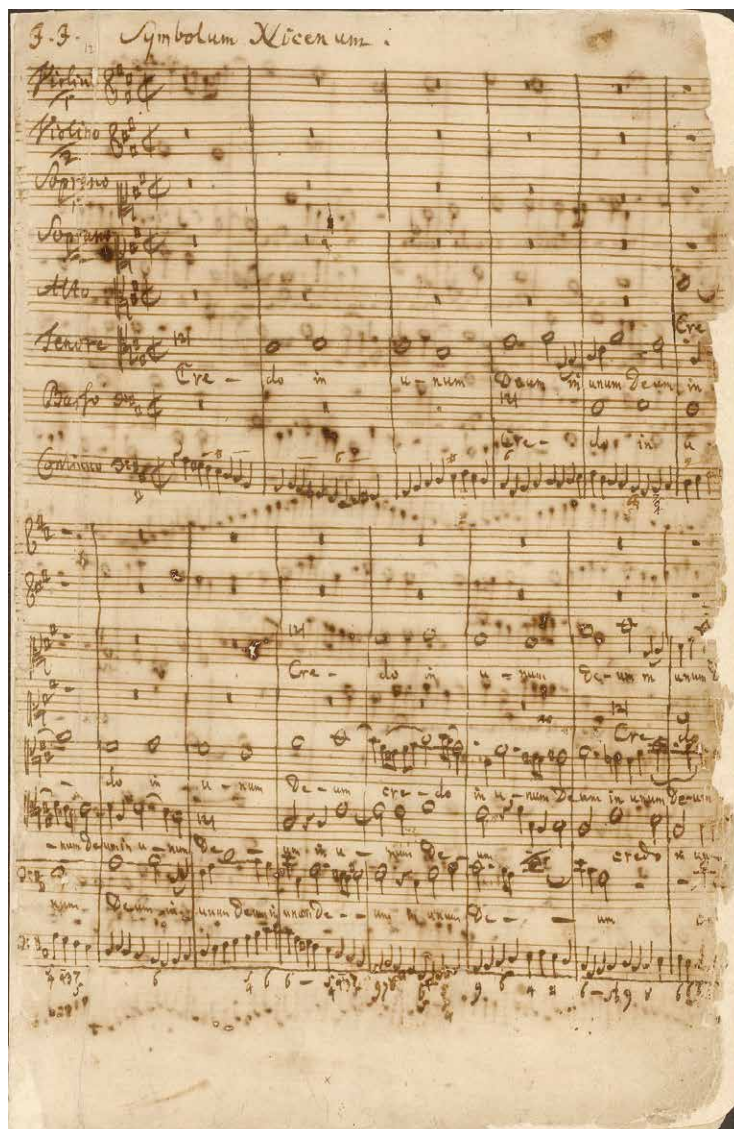 J. J. Symbolum Nicenum.
Violino 1
Violino 2
Soprano 1
Soprano
Alto
Cre
Tenore
Cre - do in u - num Deum in unum Deum, in
Basso
Cre - do in u
Continuo
Cre - do in u - num De - um in unum
Cre - do
do in u - num De - um cre - do in u - num Deum in unum De - um
- num Deum in u - num De - um in u - num De - um credo in un
num Deum in unum Deum in unum De - - um in unum De - - um